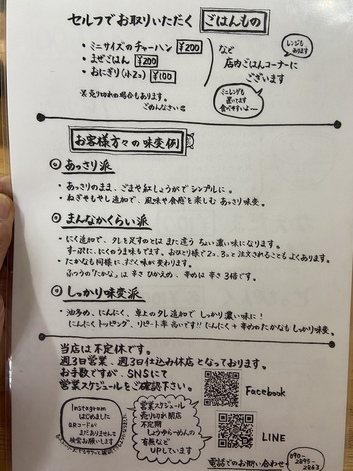 セルフでお取りいただく ごはんもの
・ミニサイズのチャーハン ¥200
・まぜごはん ¥200
・おにぎり(小2コ) ¥100
など
店内ごはんコーナーに
ございます
レンジも
あります
※売り切れの場合もあります。
ごめんなさい
ミニレンゲも
置いてます
食べやすいよー
お客様方々の味変例
◎あっさり派
・あっさりのまま、ごまや紅しょうがでシンプルに。
・ねぎやもやし追加で、風味や食感を楽しむ あっさり味変。
◎まんなかくらい派
・にく追加で、タレを足すのとはまた違う ちょい濃い味になります。
すーぷに、にくのうま味もでます。おひとり様で2ヶ、3ヶと注文されることもよくあります。
・たかなも同様に、すごく味が変わります。
ふつうの「たかな」は辛さひかえめ、辛めは辛さ3倍です。
◎しっかり味変派
・油多め、にんにく、卓上のタレ追加で しっかり濃い味に!
にんにくトッピング、リピート率高いです!! にんにく+辛めのたかなもしっかり味変。
当店は不定休です。
週3日営業、週3日仕込み休店となっております。
お手数ですが、SNSにて
営業スケジュールをご確認下さい。
Facebook
Instagram
はじめました
QRコードが
まだありませんで
検索お願いします
営業スケジュール
売り切れ閉店
不定期
しょうゆらーめんの
有無など
UPしています
LINE
電話でのお問い合わせ
090-
2895-
2863